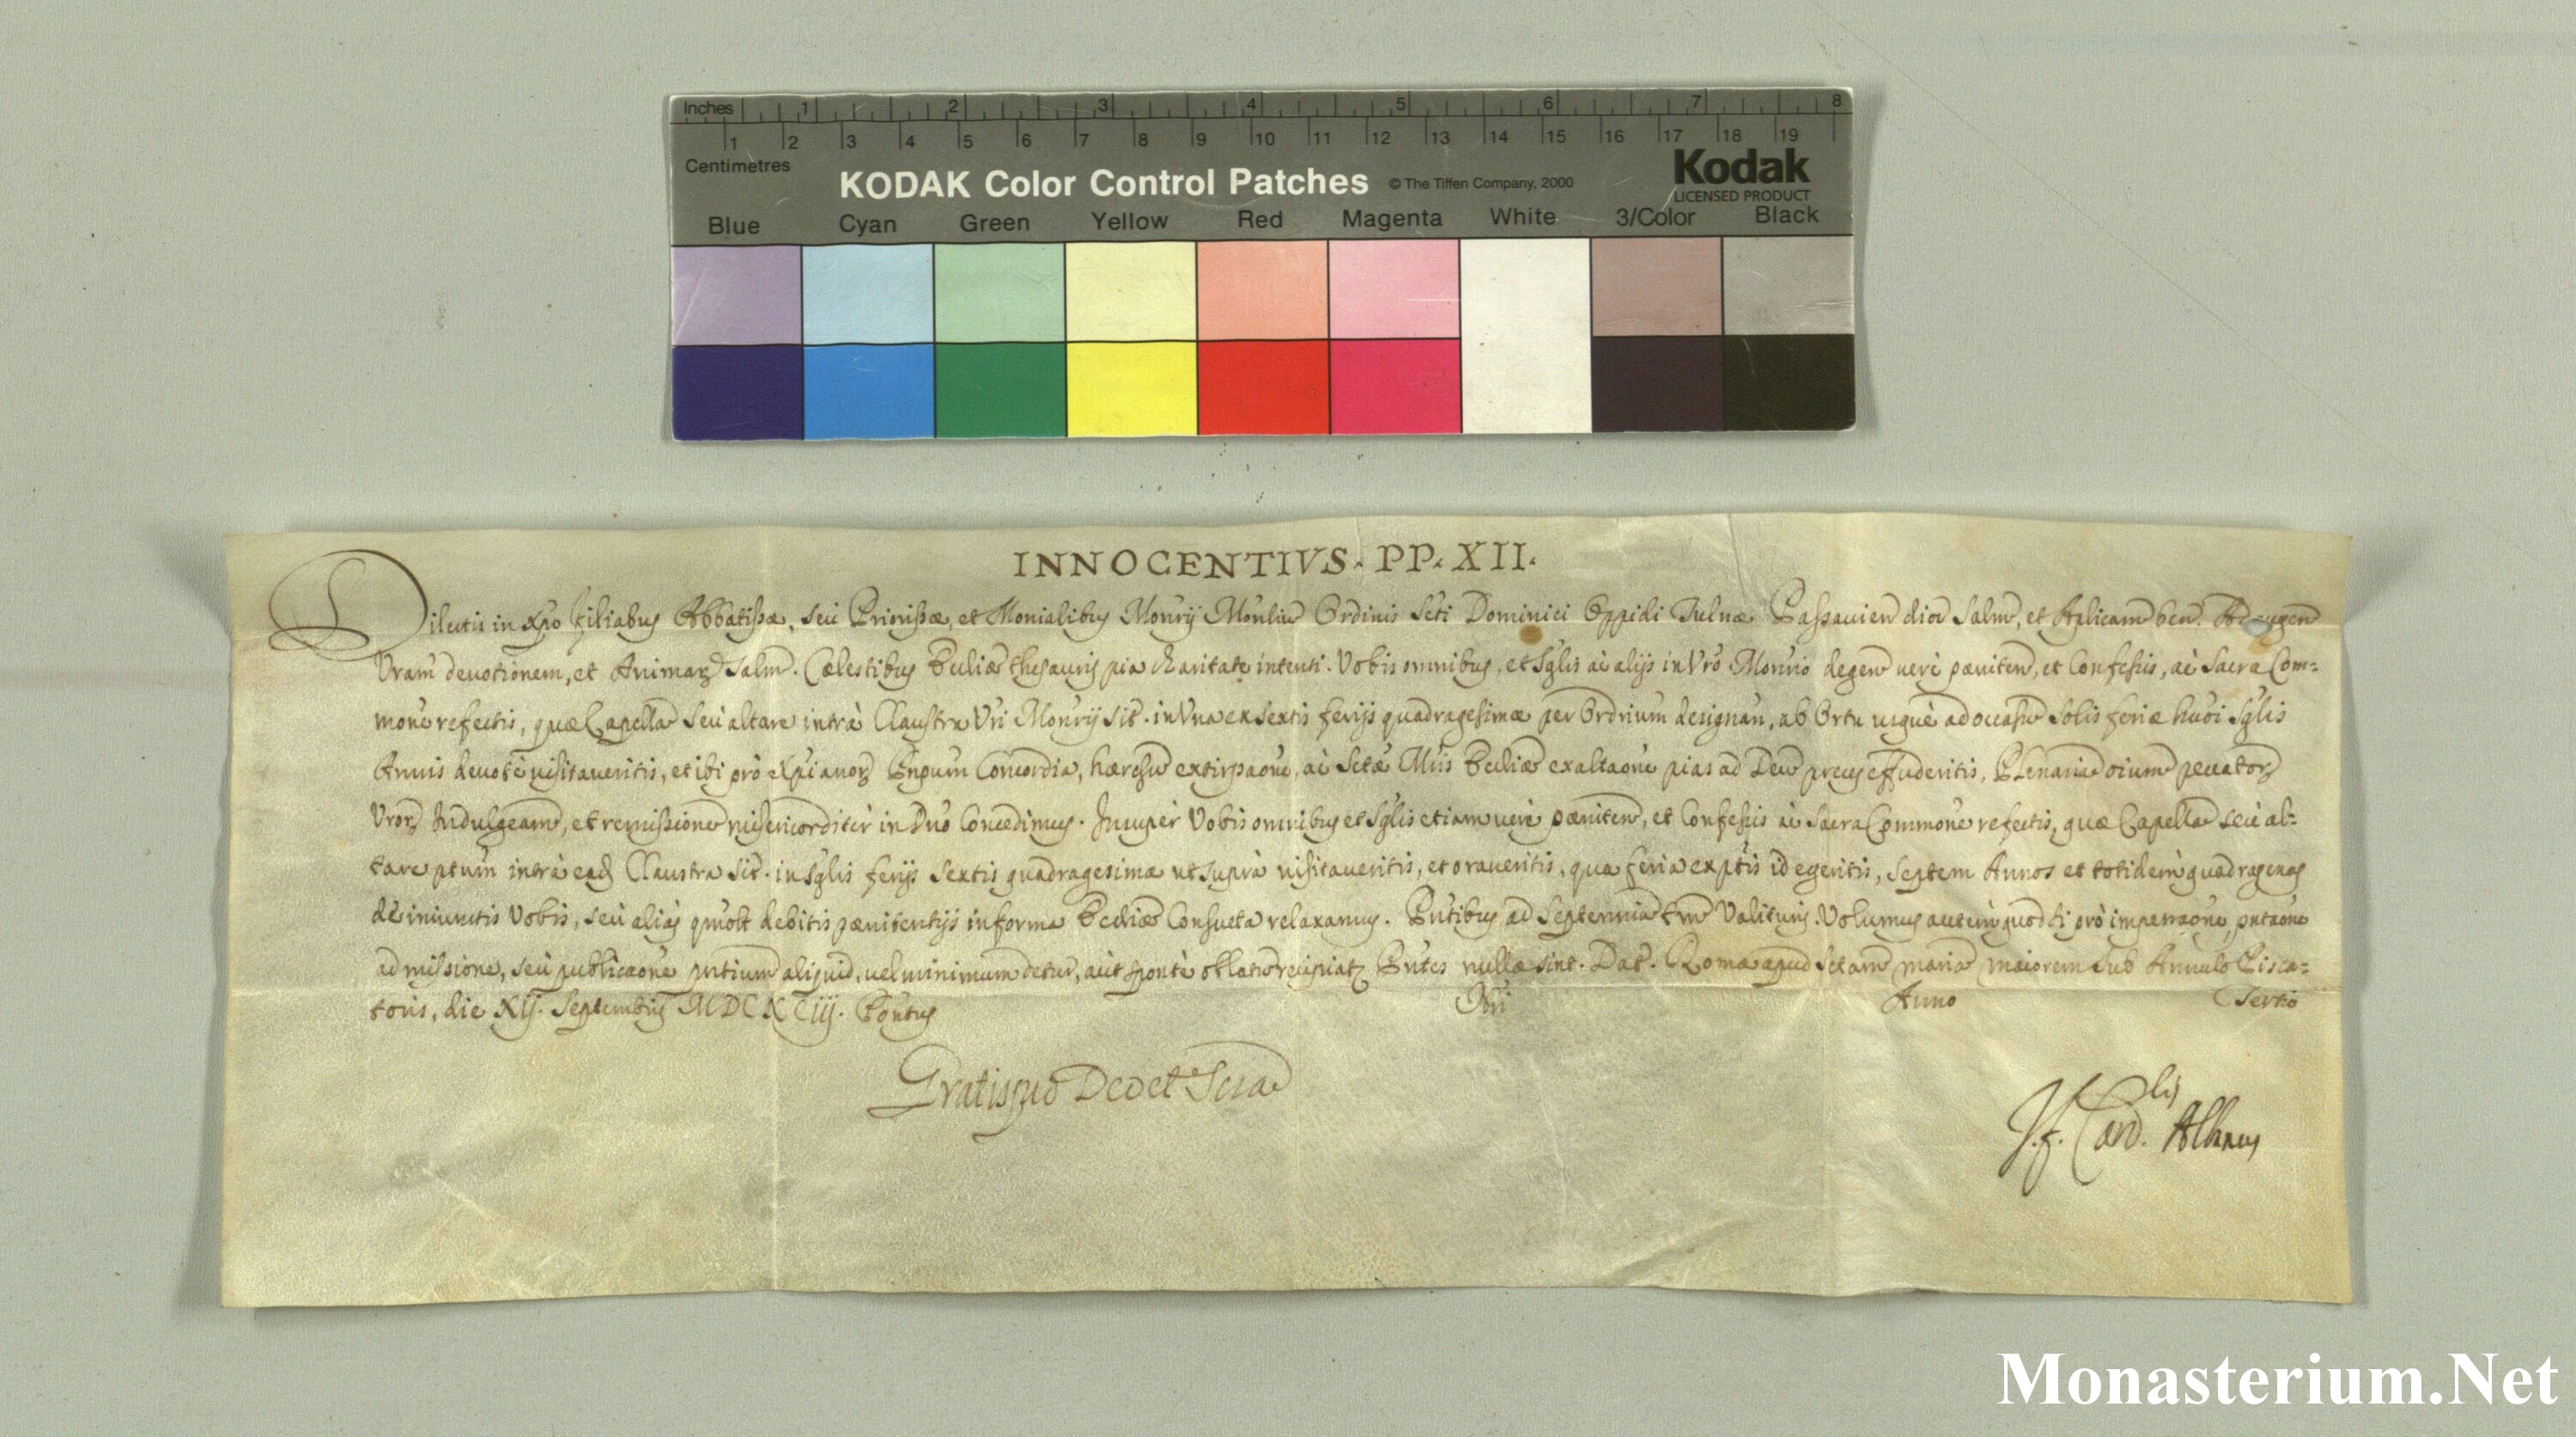 Inches 1 2 3 4 5 6 7 8
1 2 3 4 5 6 7 8 9 10 11 12 13 14 15 16 17 18 19
Centimetres
KODAK Color Control Patches © The Tiffen Company, 2000 Kodak
LICENSED PRODUCT
Blue Cyan Green Yellow Red Magenta White 3/Color Black
INNOCENTIVS. PP. XII.
Dilectis in xpo filiabus Abbatissæ, seù Priorissæ, et Monialibus Monrij Monliu Ordinis Scti Dominici Oppidi Tulnæ Passauien dior Salm, et Aplicam ben. Ad augen
Vram deuotionem, et Animarz Salm. Cælestibus Ecclæ thesauris pia charitate intenti. Vobis omnibus, et Sglis ac alijs in Vro Monrio degen verè pæniten, et Confessis, ac Sacra Com-
mone refectis, quæ Capella seù altare intrà Claustra Vri Monrij sit. in Vna ex sextis ferijs quadragesimæ per Ordrium designan, ab Ortu usquè ad occasu Solis feriæ huōi Sglis
Annis deuotè visitaueritis, et ibi prò Xpianorz Pnpum Concordia, hæresu extirpaone, ac Sctæ Mris Ecclæ exaltaone pias ad Deu preces effuderitis, Plenaria oium peccatorz
Vrorz Indulgeam, et remissione misericorditèr in Dno Concedimus. Insupèr Vobis omnibus et Sglis etiam verè pæniten, et Confessis ac Sacra Commone refectis, quæ Capella seù al-
tare ptum intrà ead Claustra sit. in sglis ferijs sextis quadragesimæ ut suprà visitaueritis, et oraueritis, qua feria ex ptis id egeritis, septem Annos et totidem quadragenas
de iniunctis Vobis, seù aliàs quolt debitis pænitentijs in forma Ecclæ Consueta relaxamus. Pntibus ad Septennia tm Valituris. Volumus autem quod si prò impetraone, pntaone
admissione, seù publicaone pntium aliquid, vel minimum detur, aut spontè oblatu recipiatz Pntes nullæ sint. Dat. Romæ apud Sctam Maria maiorem Sub Annulo Pisca-
toris, die XIJ. Septembris MDCXCIIJ. Pontus Nri Anno Tertio
Gratis pro Deo et Scra
J. f. Card. Albanus
Monasterium.Net